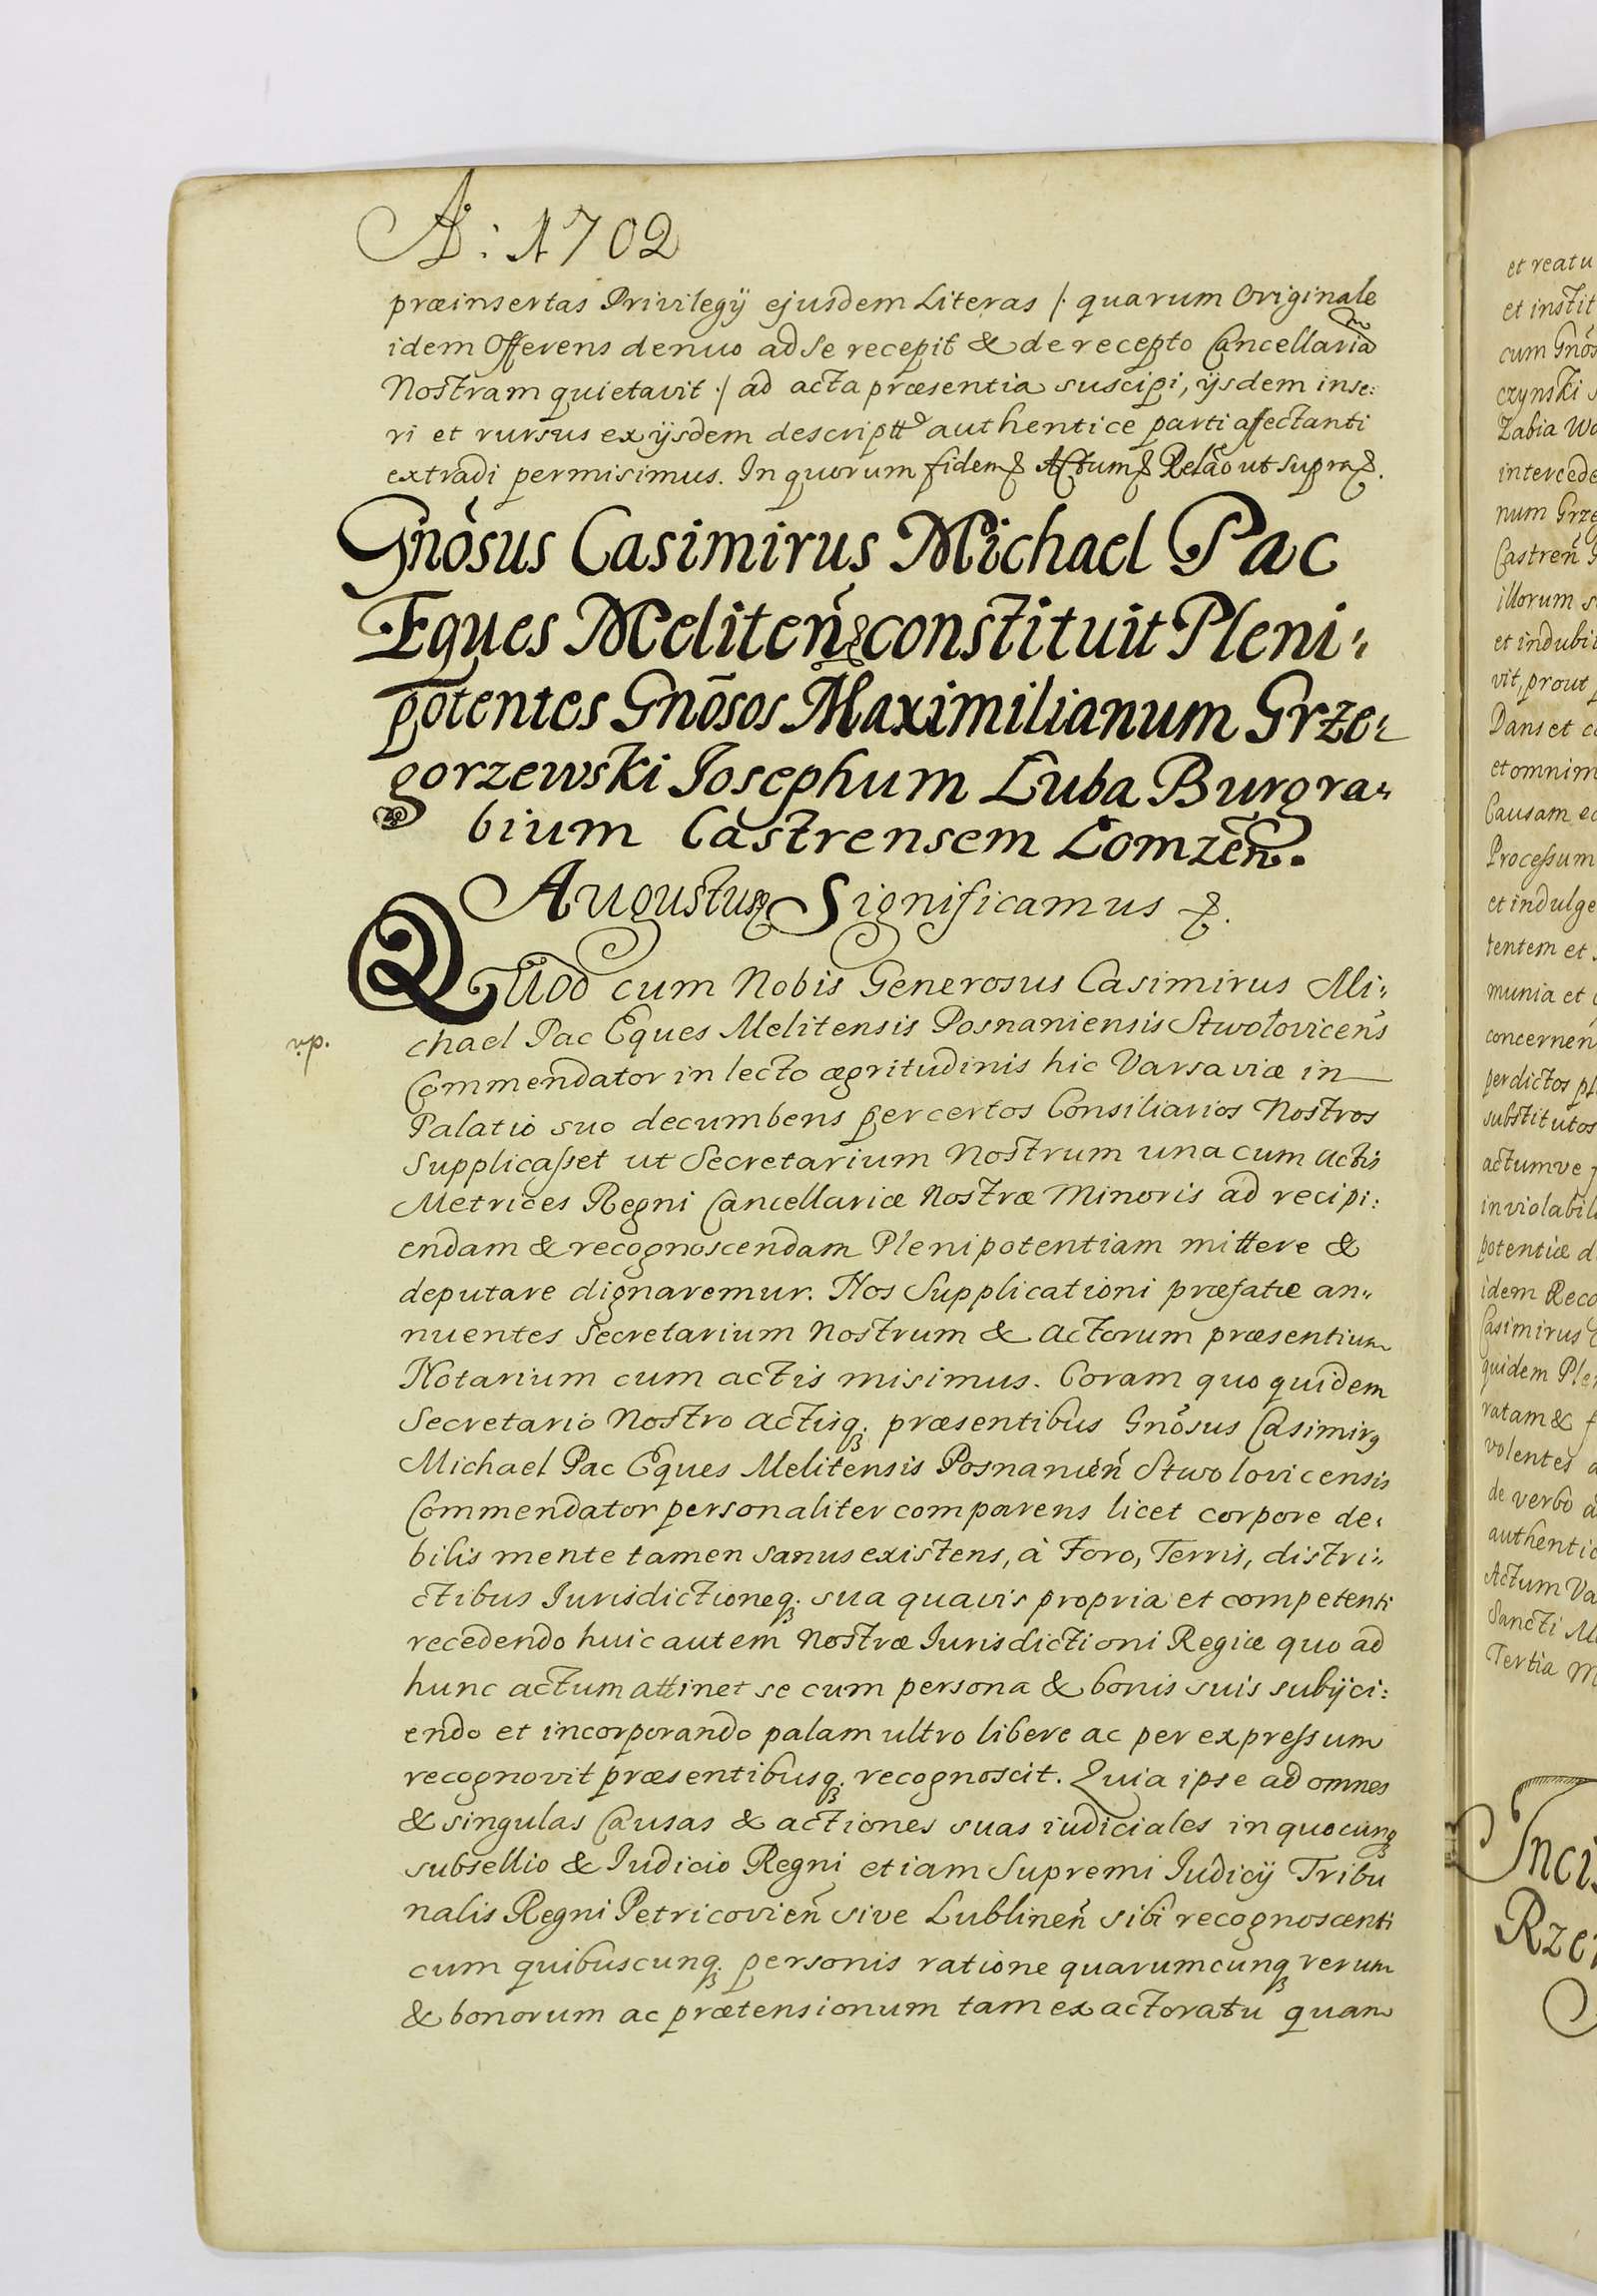 A͞o: 1702
præinsertas Privilegÿ ejusdem Literas /. quarum Originale
idem Offerens denuo ad se recepit & de recepto Cancellariam
Nostram quietavit ./ ad acta præsentia suscipi, ÿsdem inse:
ri et rursus ex ÿsdem descriptt authentice parti affectanti
extradi permisimus. In quorum fidem & Actum & Relão ut supra &.
Gnõsus Casimirus Michael Pac
Eques Meliteñ & constituit Pleni:
potentes Gnõsos Maximilianum Grze:
gorzewski Iosephum Luba Burgra:
bium Castrensem Lomzeñ.
Augustus & Significamus &.
Quod cum Nobis Generosus Casimirus Mi:
chael Pac Eques Melitensis Posnaniensis Stwołoviceñs
Commendator in lecto ægritudinis hic Varsaviæ in
Palatio suo decumbens per certos Consiliarios Nostros
Supplicasset ut Secretarium Nostrum una cum actis
Metrices Regni Cancellariæ Nostræ Minoris ad recipi:
endam & recognoscendam Plenipotentiam mittere &
deputare dignaremur. Nos Supplicationi præfatæ an:
nuentes Secretarium Nostrum & Actorum præsentium
Notarium cum actis misimus. Coram quo quidem
Secretario Nostro actisq; præsentibus Gnõsus Casimirg
Michael Pac Eques Melitensis Posnanieñ Stwolovicensis
Commendator personaliter comparens licet corpore de:
bilis mente tamen sanus existens, à Foro, Terris, distri:
ctibus Iurisdictioneq; sua quavis propria et competenti
recedendo huic autem Nostræ Iurisdictioni Regiæ quo ad
hunc actum attinet se cum persona & bonis suis subÿci:
endo et incorporando palam ultro libere ac per expressum
recognovit præsentibusq; recognoscit. Quia ipse ad omnes
& singulas Causas & actiones suas iudiciales in quocunq;
subsellio & Iudicio Regni etiam Supremi Iudicÿ Tribu
nalis Regni Petricovieñ sive Lublineñ sibi recognoscenti
cum quibuscunq; personis ratione quarumcunq; rerum
& bonorum ac prætensionum tam ex actoratu quam
et reatu
et instit
cum Gnõs
czynski
Zabia Wo
intercede
num Grze
Castreñ
illorum s
et indubi
vit, prout
Dans et c
et omnim
Causam ed
Processum
et indulge
tentem et
munia et
concerneñ
per dictos pl
substitutos
actumve
inviolabil
potentiæ d
idem Reco
Casimirus
quidem Plen
ratam & f
volentes a
de verbo a
authentic
Actum Va
Sancti M
Tertia M
Incis
Rze